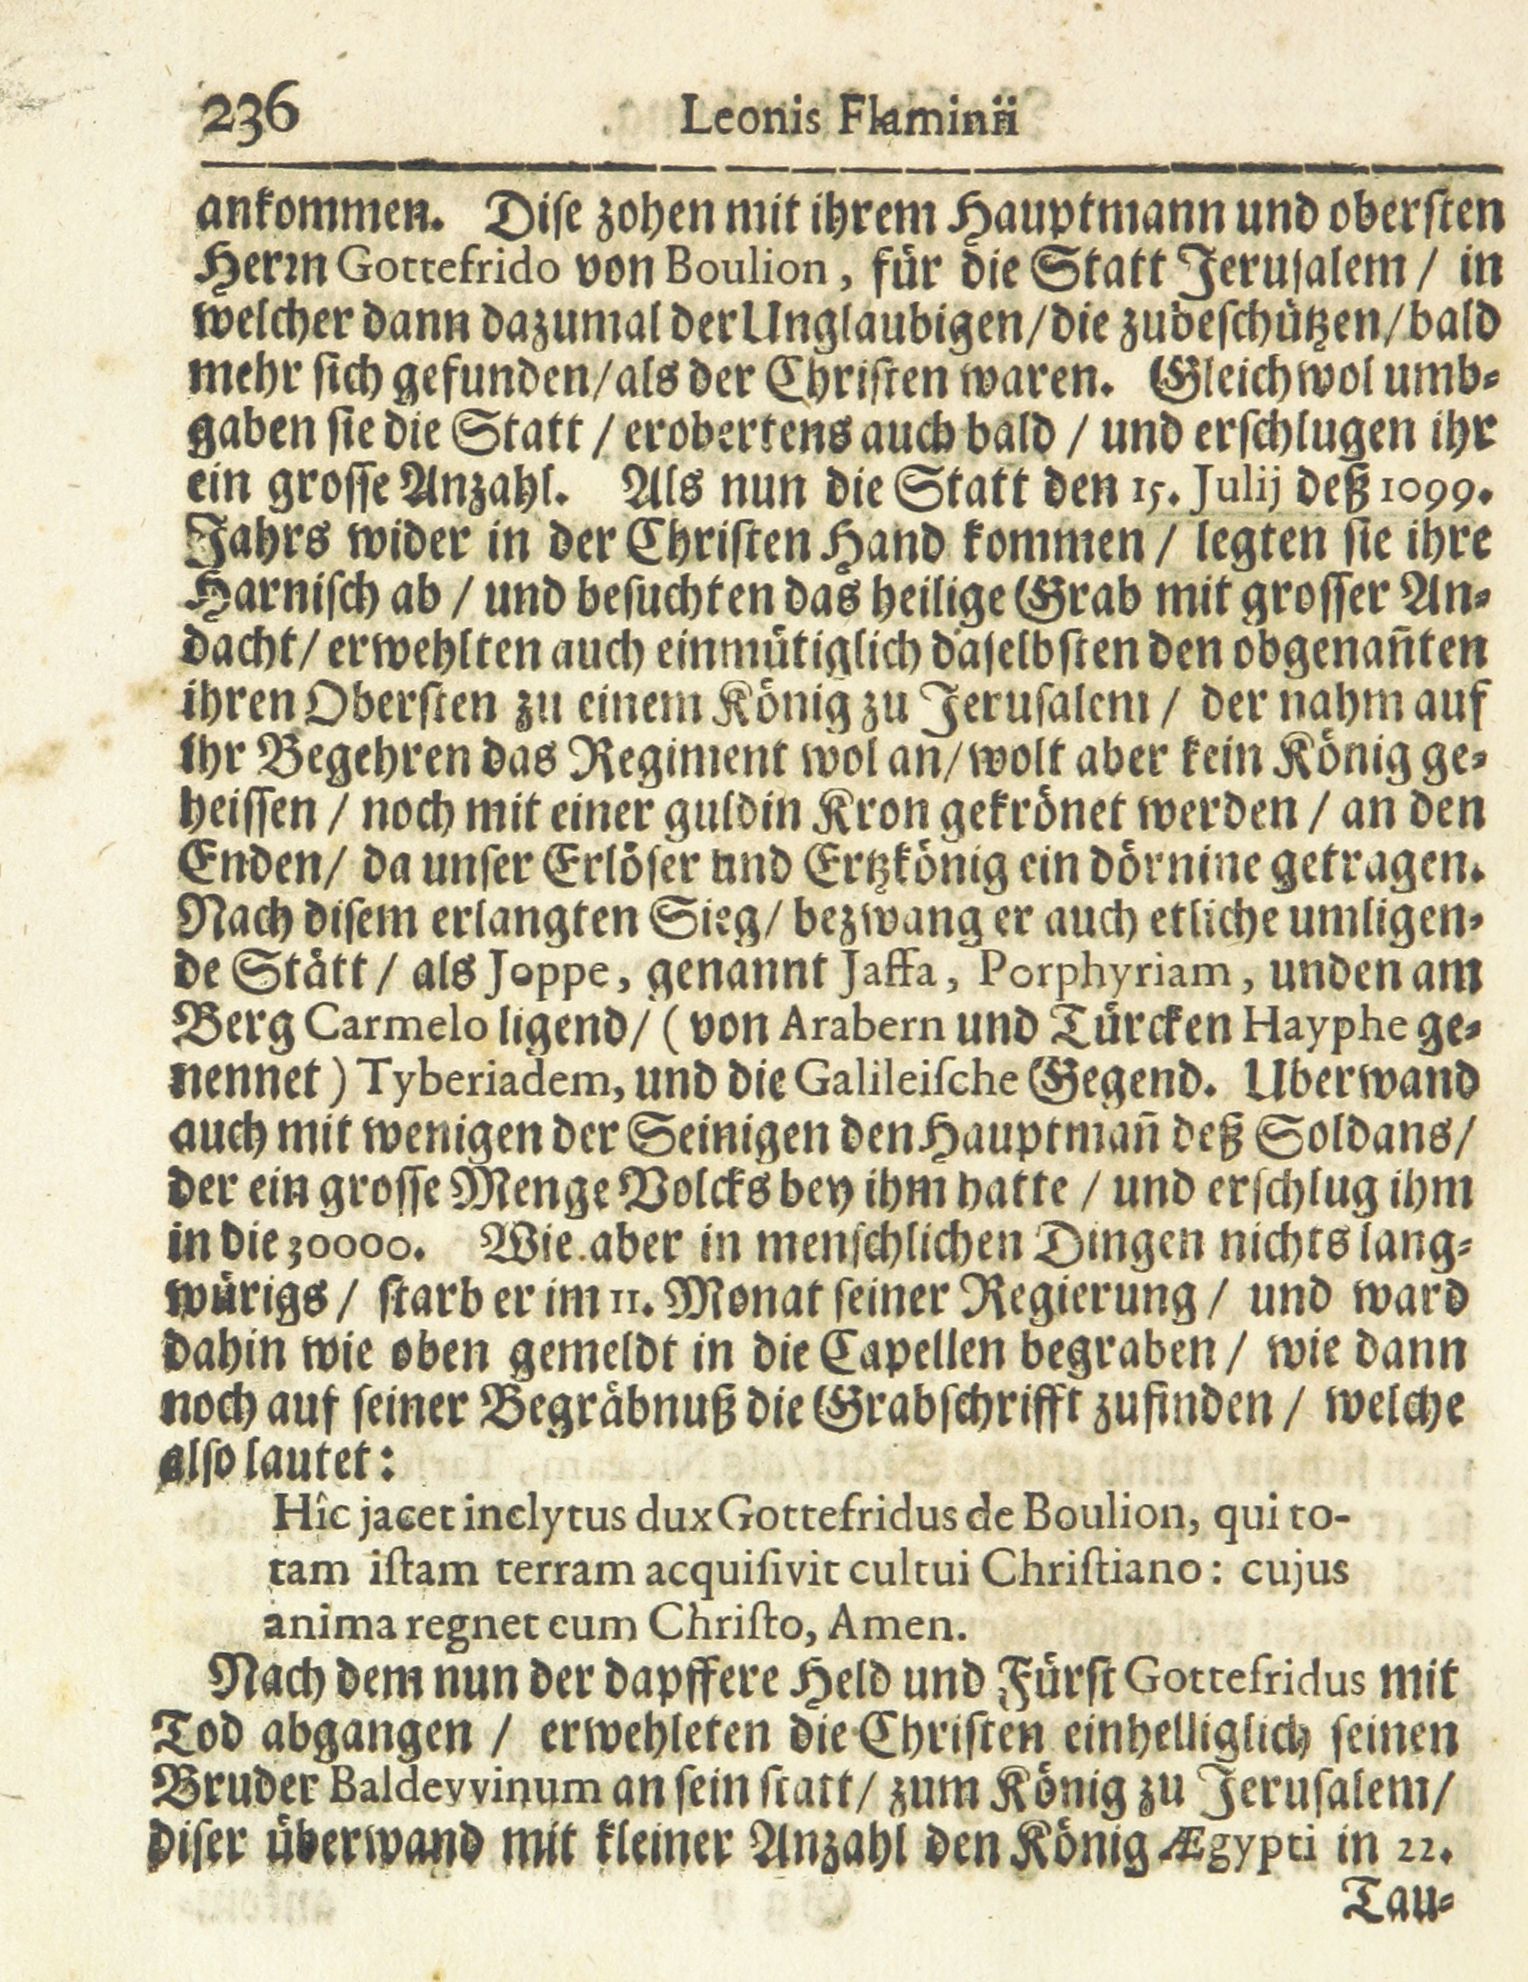 236 Leonis Flaminii
ankommen. Dise zohen mit ihrem Hauptmann und obersten
Herrn Gottefrido von Boulion, für die Statt Jerusalem / in
welcher dann dazumal der Unglaubigen/die zubeschützen/bald
mehr sich gefunden/als der Christen waren. Gleichwol umb-
gaben sie die Statt / erobertens auch bald / und erschlugen ihr
ein grosse Anzahl. Als nun die Statt den 15. Julij deß 1099.
Jahrs wider in der Christen Hand kommen / legten sie ihre
Harnisch ab / und besuchten das heilige Grab mit grosser An-
dacht/ erwehlten auch einmütiglich daselbsten den obgenañten
ihren Obersten zu einem König zu Jerusalem / der nahm auf
ihr Begehren das Regiment wol an/wolt aber kein König ge-
heissen / noch mit einer guldin Kron gekrönet werden / an den
Enden/ da unser Erlöser und Ertzkönig ein dörnine getragen.
Nach disem erlangten Sieg/ bezwang er auch etliche umligen-
de Stätt / als Joppe, genannt Jaffa, Porphyriam, unden am
Berg Carmelo ligend/ ( von Arabern und Türcken Hayphe ge-
nennet ) Tyberiadem, und die Galileiſche Gegend. Uberwand
auch mit wenigen der Seinigen den Hauptmañ deß Soldans/
der ein grosse Menge Volcks bey ihm hatte / und erschlug ihm
in die 30000. Wie aber in menschlichen Dingen nichts lang-
würigs / starb er im 11. Monat seiner Regierung / und ward
dahin wie oben gemeldt in die Capellen begraben / wie dann
noch auf seiner Begräbnuß die Grabschrifft zufinden / welche
also lautet:
Hîc jacet inclytus dux Gottefridus de Boulion, qui to-
tam iſtam terram acquiſivit cultui Chriſtiano: cujus
anima regnet cum Chriſto, Amen.
Nach dem nun der dapffere Held und Fürst Gottefridus mit
Tod abgangen / erwehleten die Christen einhelliglich seinen
Bruder Baldevvinum an sein statt/ zum König zu Jerusalem/
diser überwand mit kleiner Anzahl den König Ægypti in 22.
Tau-